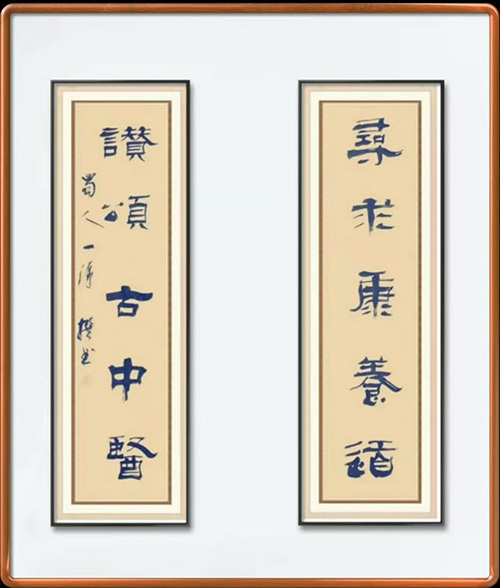 尋求康養道
讚頌古中醫
蜀人一清 撰书